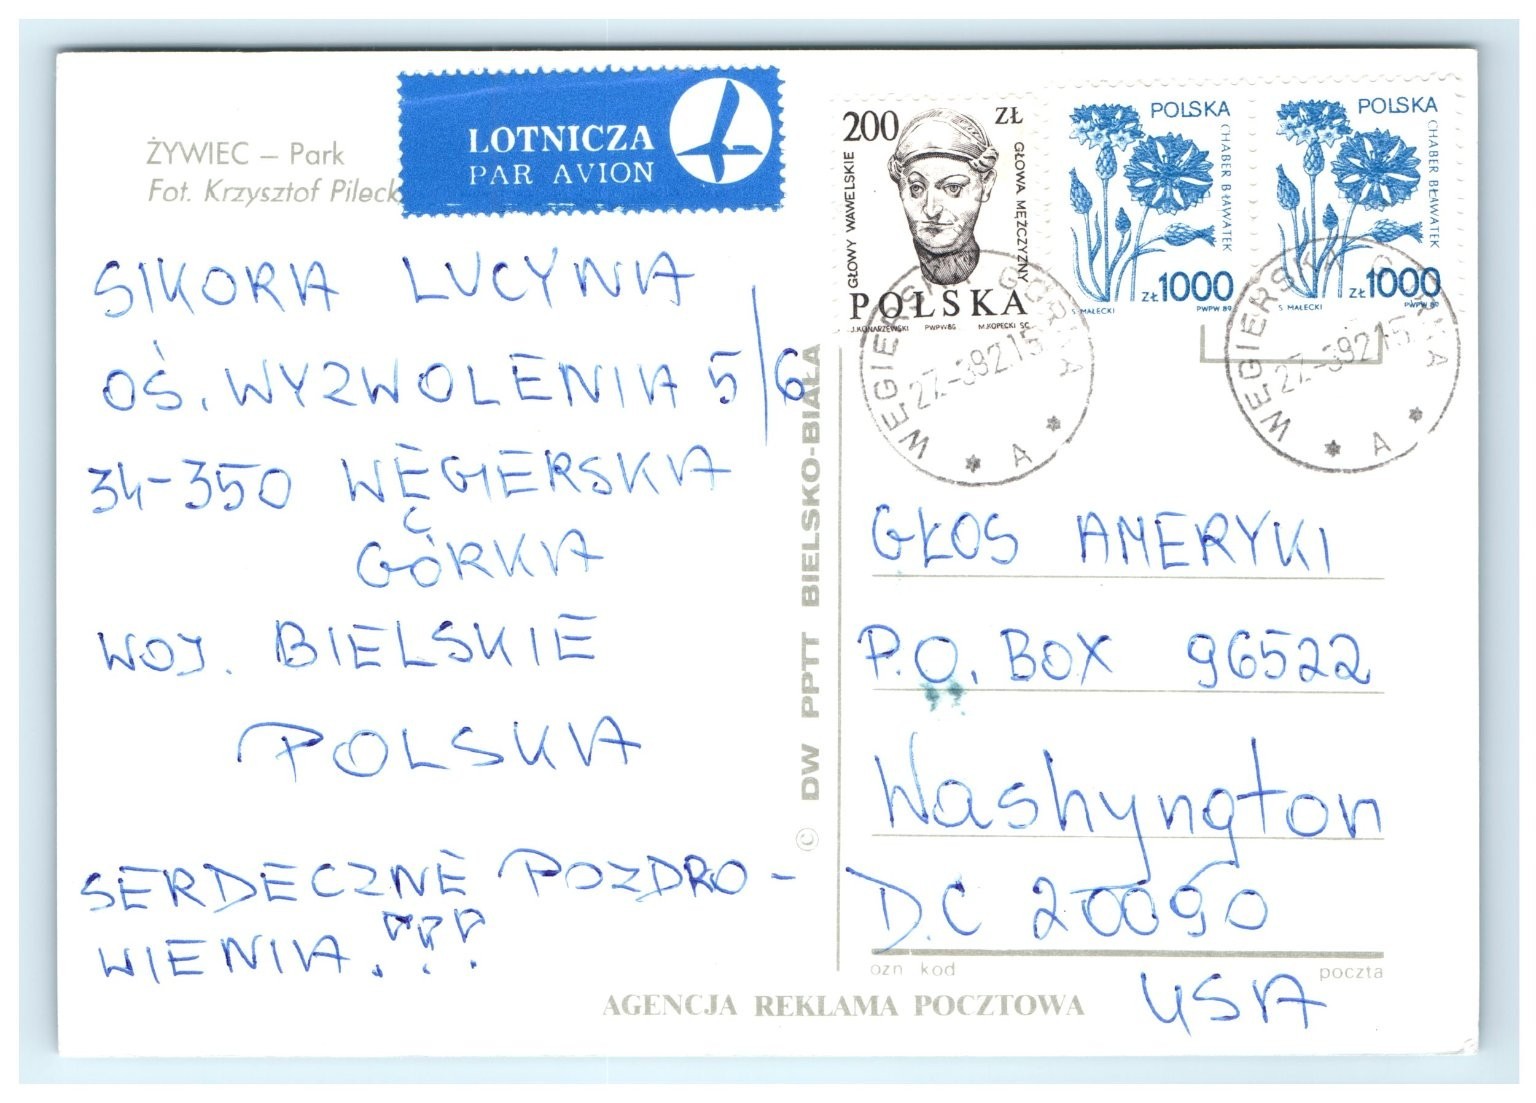 ŻYWIEC – Park
Fot. Krzysztof Pileck
LOTNICZA
PAR AVION
SIKORA LUCYNA
OŚ. WYZWOLENIA 5/6
34-350 WĘGIERSKA
GÓRKA
WOJ. BIELSKIE
POLSKA
SERDECZNE POZDRO-
WIENIA.!!!
© DW PPTT BIELSKO-BIAŁA
AGENCJA REKLAMA POCZTOWA
200 ZŁ
GŁOWY WAWELSKIE
GŁOWA MĘŻCZYZNY
POLSKA
J.KONARZEWSKI PWPW86 M.KOPECKI SC.
POLSKA
CHABER BŁAWATEK
ZŁ 1000
S MAŁECKI PWPW 89
POLSKA
CHABER BŁAWATEK
ZŁ 1000
S MAŁECKI PWPW 89
WĘGIERSKA GÓRKA
27.-3.92.15
A
WĘGIERSKA GÓRKA
27.-3.92.15
A
GŁOS AMERYKI
P.O. BOX 96522
Washyngton
D.C 20090
ozn kod poczta
USA